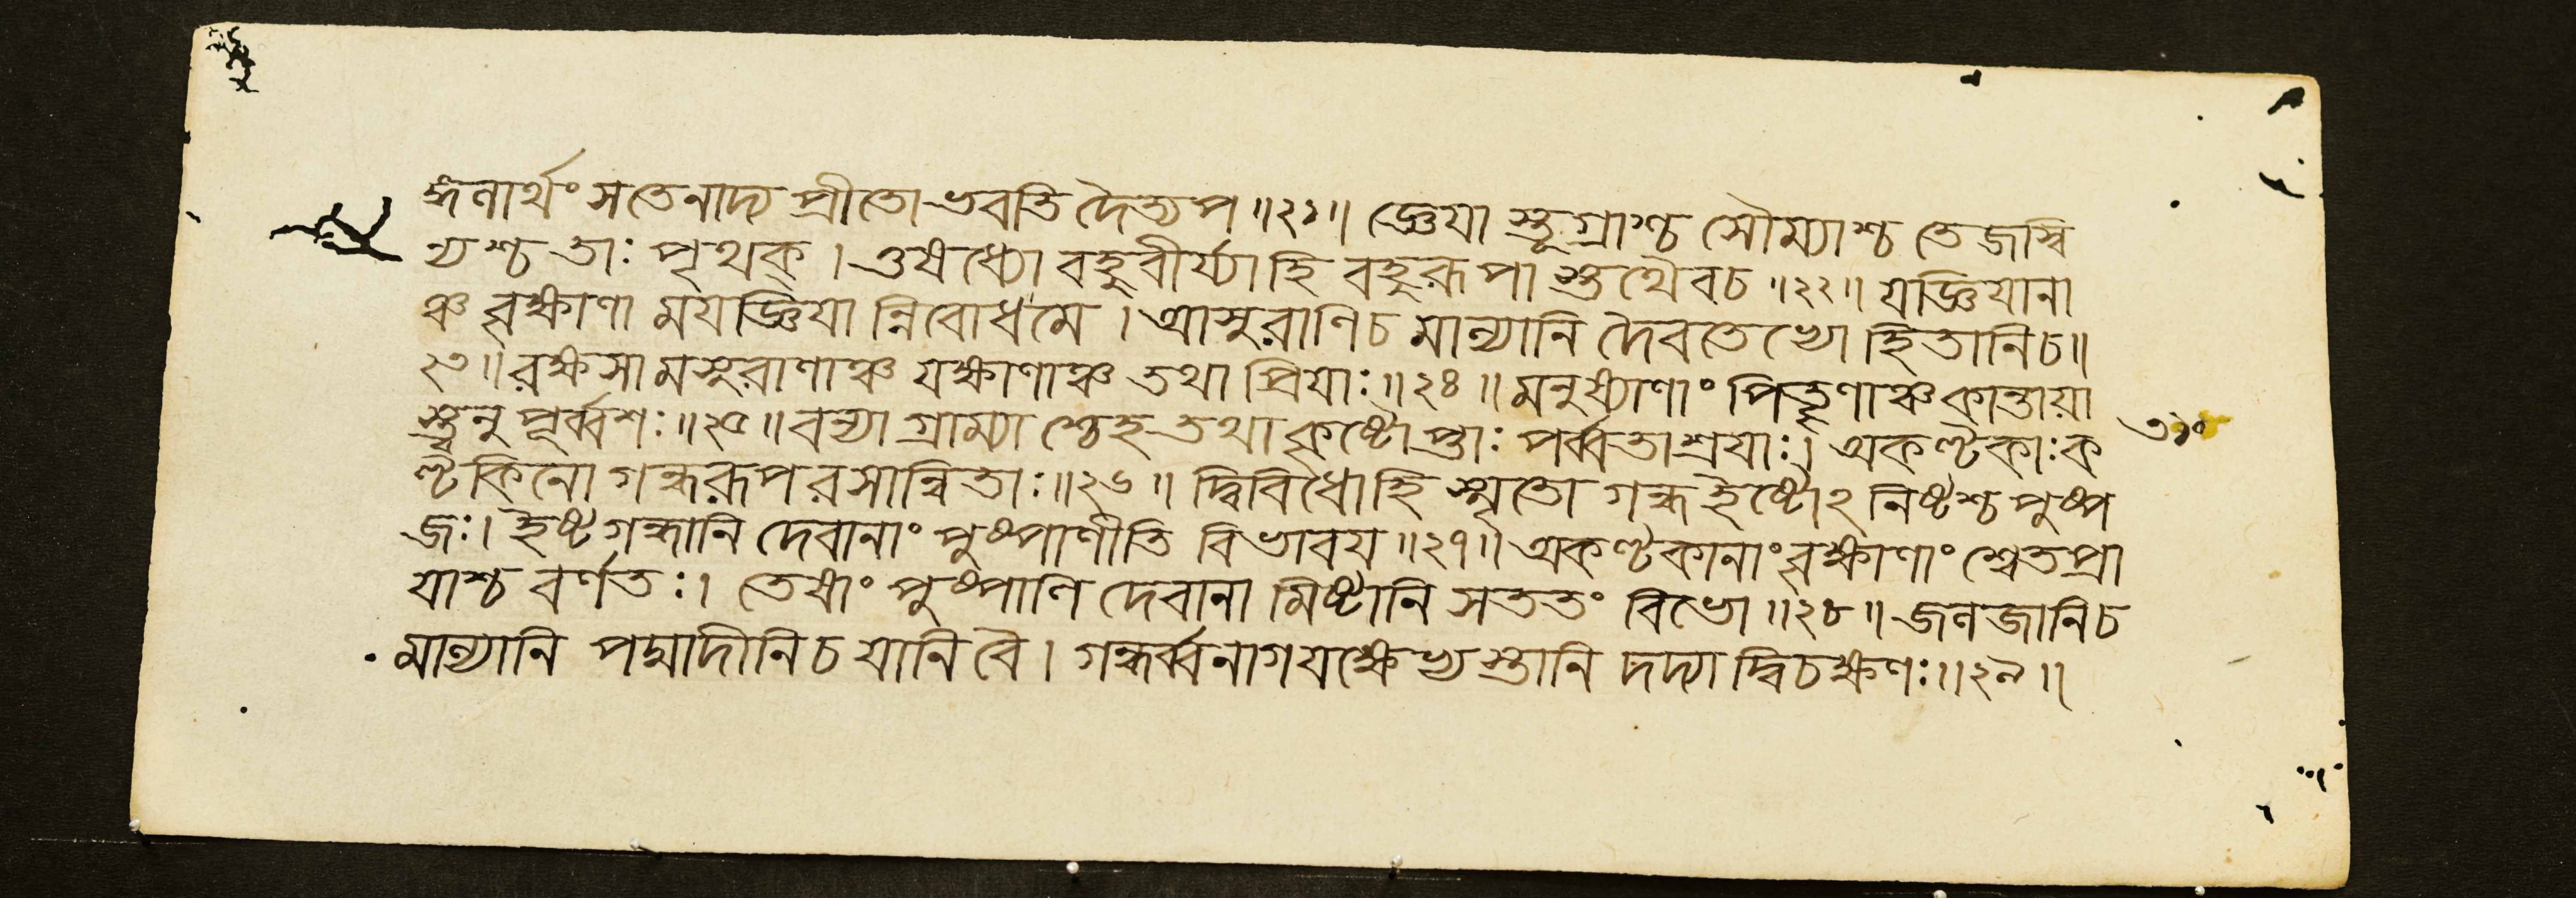 র্দ্দনার্থং স তেনাদ্য প্রীতো ভবতি দৈত্যপ ॥২১॥ জ্ঞেয়া স্তূগ্রাশ্চ সৌম্যাশ্চ তেজস্বি
ন্যশ্চ তাঃ পৃথক্ । ওষধ্যো বহুবীর্য্যা হি বহুরূপা স্তথৈবচ ॥২২॥ যজ্ঞিয়ানা
ঞ্চ বৃক্ষাণা ময়জ্ঞিয়া ন্নিবোধমে । আসুরাণিচ মাল্যানি দৈবতেভ্যো হিতানিচ॥
২৩॥ রক্ষসা মসুরাণাঞ্চ যক্ষাণাঞ্চ তথা প্রিয়াঃ ॥২৪॥ মনুষ্যাণাং পিতৄণাঞ্চ কান্তায়া
স্ত্বনু পূর্ব্বশঃ ॥২৫॥ বন্যা গ্রাম্যা শ্চেহ তথা কৃষ্টোপ্তাঃ পর্ব্বতাশ্রয়াঃ। অকণ্টকাঃ ক ৩১০
ণ্টকিনো গন্ধরূপ রসান্বিতাঃ॥২৬॥ দ্বিবিধোহি স্মৃতো গন্ধ ইষ্টোঽ নিষ্টশ্চ পুষ্প
জঃ। ইষ্ট গন্ধানি দেবানাং পুষ্পাণীতি বিভাবয় ॥২৭॥ অকণ্টকানাং বৃক্ষাণাং শ্বেতপ্রা
য়াশ্চ বর্ণতঃ। তেষাং পুষ্পাণি দেবানা মিষ্টানি সততং বিভো ॥২৮॥ জলজানিচ
মাল্যানি পদ্মাদীনিচ যানি বৈ। গন্ধর্ব্বনাগযক্ষেভ্য স্তানি দদ্যা দ্বিচক্ষণঃ॥২৯॥